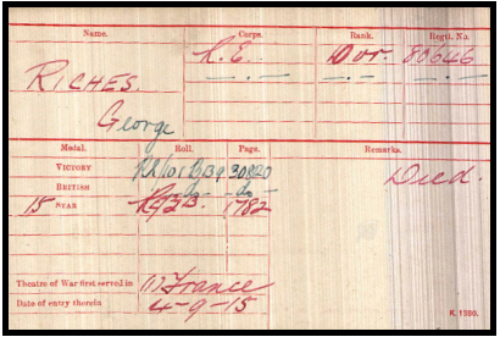 Name. Corps. Rank. Regtl. No.
RICHES. R.E. Dvr. 80646
George
Medal. Roll. Page. Remarks.
VICTORY RE/101 B39 30820 Died.
BRITISH -do- -do-
15 STAR RE/2B. 1782
Theatre of War first served in (1) France
Date of entry therein 4-9-15
K. 1380.